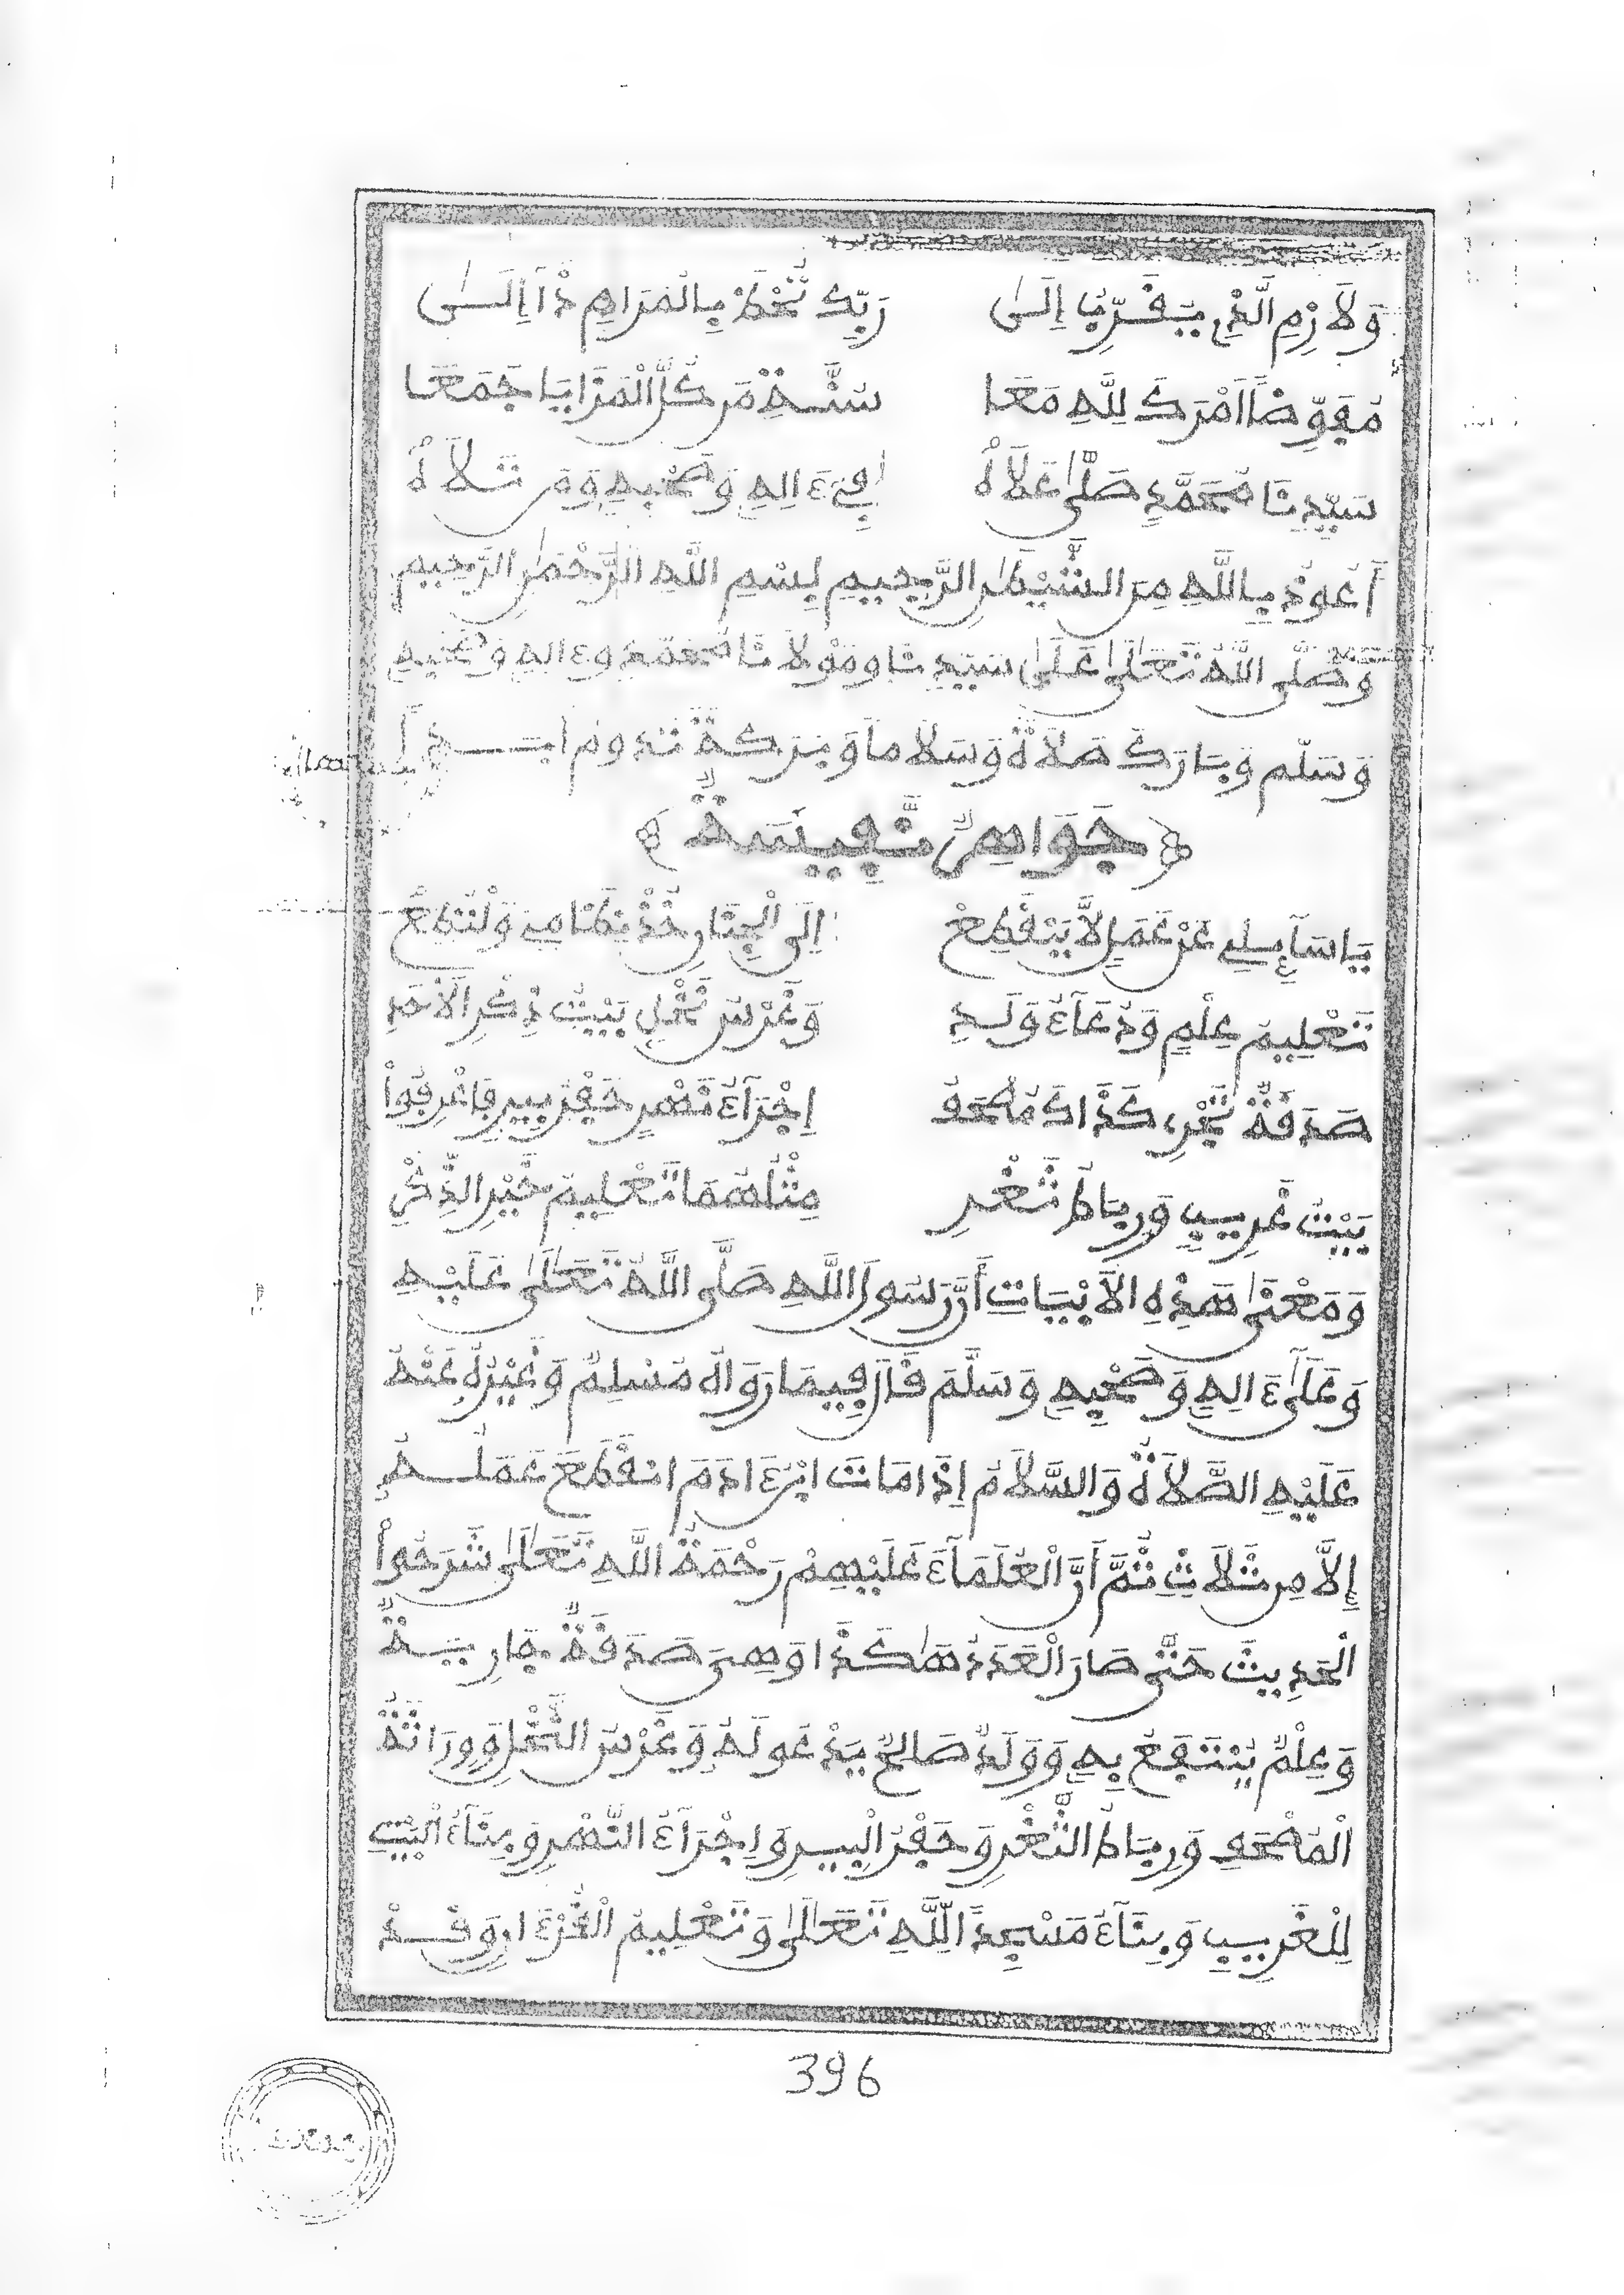 وَلَازِمِ الَّذِي يُقَرِّبُ إِلَى رَبِّكَ تُحْظَ بِالْمَرَامِ ذَا إِلَى
مُفَوِّضًا أَمْرَكَ لِلَّهِ مَعَا سُنَّةِ مَن كُلَّ الْمَزَايَا جَمَعَا
سَيِّدِنَا مُحَمَّدٍ صَلَّى عَلَاهُ فِي ءَالِهِ وَصَحْبِهِ وَمَن تَلَاهُ
أَعُوذُ بِاللَّهِ مِنَ الشَّيْطَٰنِ الرَّجِيمِ بِسْمِ اللَّهِ الرَّحْمَٰنِ الرَّحِيمِ
وَصَلَّى اللَّهُ تَعَالَىٰ عَلَىٰ سَيِّدِنَا وَمَوْلَانَا مُحَمَّدٍ وَءَالِهِ وَصَحْبِهِ
وَسَلَّم وَبَارَكَ صَلَاةً وَسَلَامًا وَبَرَكَةً تَدُومُ أَبَدًا
﴿ جَوَاهِرٌ نَّفِيسَةٌ ﴾
يَا سَآئِلِي عَنْ عَمَلٍ لَّا يَنْقَطِعْ إِلَى الْجِنَانِ خُذْ نِظَامِي وَلْتَطِعْ
تَعْلِيمُ عِلْمٍ وَدُعَآءُ وَلَدِ وَغَرْسُ نَخْلٍ بَيْتُ ذِكْرِ الْأَحَدِ
صَدَقَةٌ تَجْرِي كَذَاكَ مُصْحَفُ إِجْرَآءُ نَهْرٍ حَفْرُ بِيرٍ فَاعْرِفُواْ
بَيْتُ غَرِيبٍ وَرِبَاطُ ثَغْرِ مِثْلُهُمَا تَعْلِيمُ خَيْرِ الذِّكْرِ
وَمَعْنَىٰ هَٰذِهِ الْأَبْيَاتِ أَنَّ رَسُولَ اللَّهِ صَلَّى اللَّهُ تَعَالَىٰ عَلَيْهِ
وَعَلَىٰ ءَالِهِ وَصَحْبِهِ وَسَلَّمَ قَالَ فِيمَا رَوَاهُ مُسْلِمٌ وَغَيْرُهُ عَنْهُ
عَلَيْهِ الصَّلَاةُ وَالسَّلَامُ إِذَا مَاتَ ابْنُ ءَادَمَ انْقَطَعَ عَمَلُهُ
إِلَّا مِن ثَلَاثٍ ثُمَّ أَنَّ الْعُلَمَآءَ عَلَيْهِمْ رَحْمَةُ اللَّهِ تَعَالَىٰ شَرَحُواْ
الْحَدِيثَ حَتَّىٰ صَارَ الْعَدَدُ هَٰكَذَا وَهِيَ صَدَقَةٌ جَارِيَةٌ
وَعِلْمٌ يُنْتَفَعُ بِهِ وَوَلَدٌ صَالِحٌ يَدْعُو لَهُ وَغَرْسُ النَّخْلِ وَوِرَاثَةُ
الْمُصْحَفِ وَرِبَاطُ الثَّغْرِ وَحَفْرُ الْبِيرِ وَإِجْرَآءُ النَّهْرِ وَبِنَآءُ الْبَيْتِ
لِلْغَرِيبِ وَبِنَآءُ مَسْجِدٍ لِلَّهِ تَعَالَىٰ وَتَعْلِيمُ الْقُرْءَانِ وَقَدْ
396